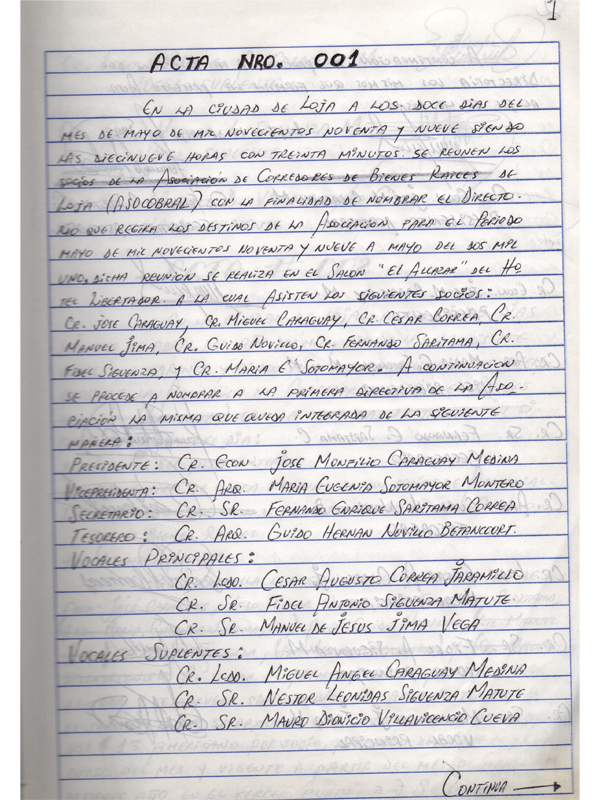 1
ACTA NRO. 001
EN LA CIUDAD DE LOJA A LOS DOCE DIAS DEL
MES DE MAYO DE MIL NOVECIENTOS NOVENTA Y NUEVE SIENDO
LAS DIECINUEVE HORAS CON TREINTA MINUTOS SE REUNEN LOS
SOCIOS DE LA ASOCIACIÓN DE CORREDORES DE BIENES RAICES DE
LOJA (ASOCOBRAL) CON LA FINALIDAD DE NOMBRAR EL DIRECTO-
RIO QUE REGIRA LOS DESTINOS DE LA ASOCIACION PARA EL PERIODO
MAYO DE MIL NOVECIENTOS NOVENTA Y NUEVE A MAYO DEL DOS MIL
UNO. DICHA REUNIÓN SE REALIZA EN EL SALON "EL ALCAZAR" DEL HO-
TEL LIBERTADOR A LA CUAL ASISTEN LOS SIGUIENTES SOCIOS:
CR. JOSE CARAGUAY, CR. MIGUEL CARAGUAY, CR. CESAR CORREA, CR.
MANUEL JIMA, CR. GUIDO NOVILLO, CR. FERNANDO SARITAMA, CR.
FIDEL SIGUENZA, Y CR. MARIA E. SOTOMAYOR. A CONTINUACION
SE PROCEDE A NOMBRAR A LA PRIMERA DIRECTIVA DE LA ASO-
CIACIÓN LA MISMA QUE QUEDA INTEGRADA DE LA SIGUIENTE
MANERA:
PRESIDENTE: CR. ECON JOSE MONFILIO CARAGUAY MEDINA
VICEPRESIDENTA: CR. ARQ. MARIA EUGENIA SOTOMAYOR MONTERO
SECRETARIO: CR. SR. FERNANDO ENRIQUE SARITAMA CORREA
TESORERO: CR. ARQ. GUIDO HERNAN NOVILLO BETANCOURT.
VOCALES PRINCIPALES:
CR. LCDO. CESAR AUGUSTO CORREA JARAMILLO
CR. SR. FIDEL ANTONIO SIGUENZA MATUTE
CR. SR. MANUEL DE JESUS JIMA VEGA
VOCALES SUPLENTES:
CR. LCDO. MIGUEL ANGEL CARAGUAY MEDINA
CR. SR. NESTOR LEONIDAS SIGUENZA MATUTE
CR. SR. MAURO DIONICIO VILLAVICENCIO CUEVA
CONTINUA →